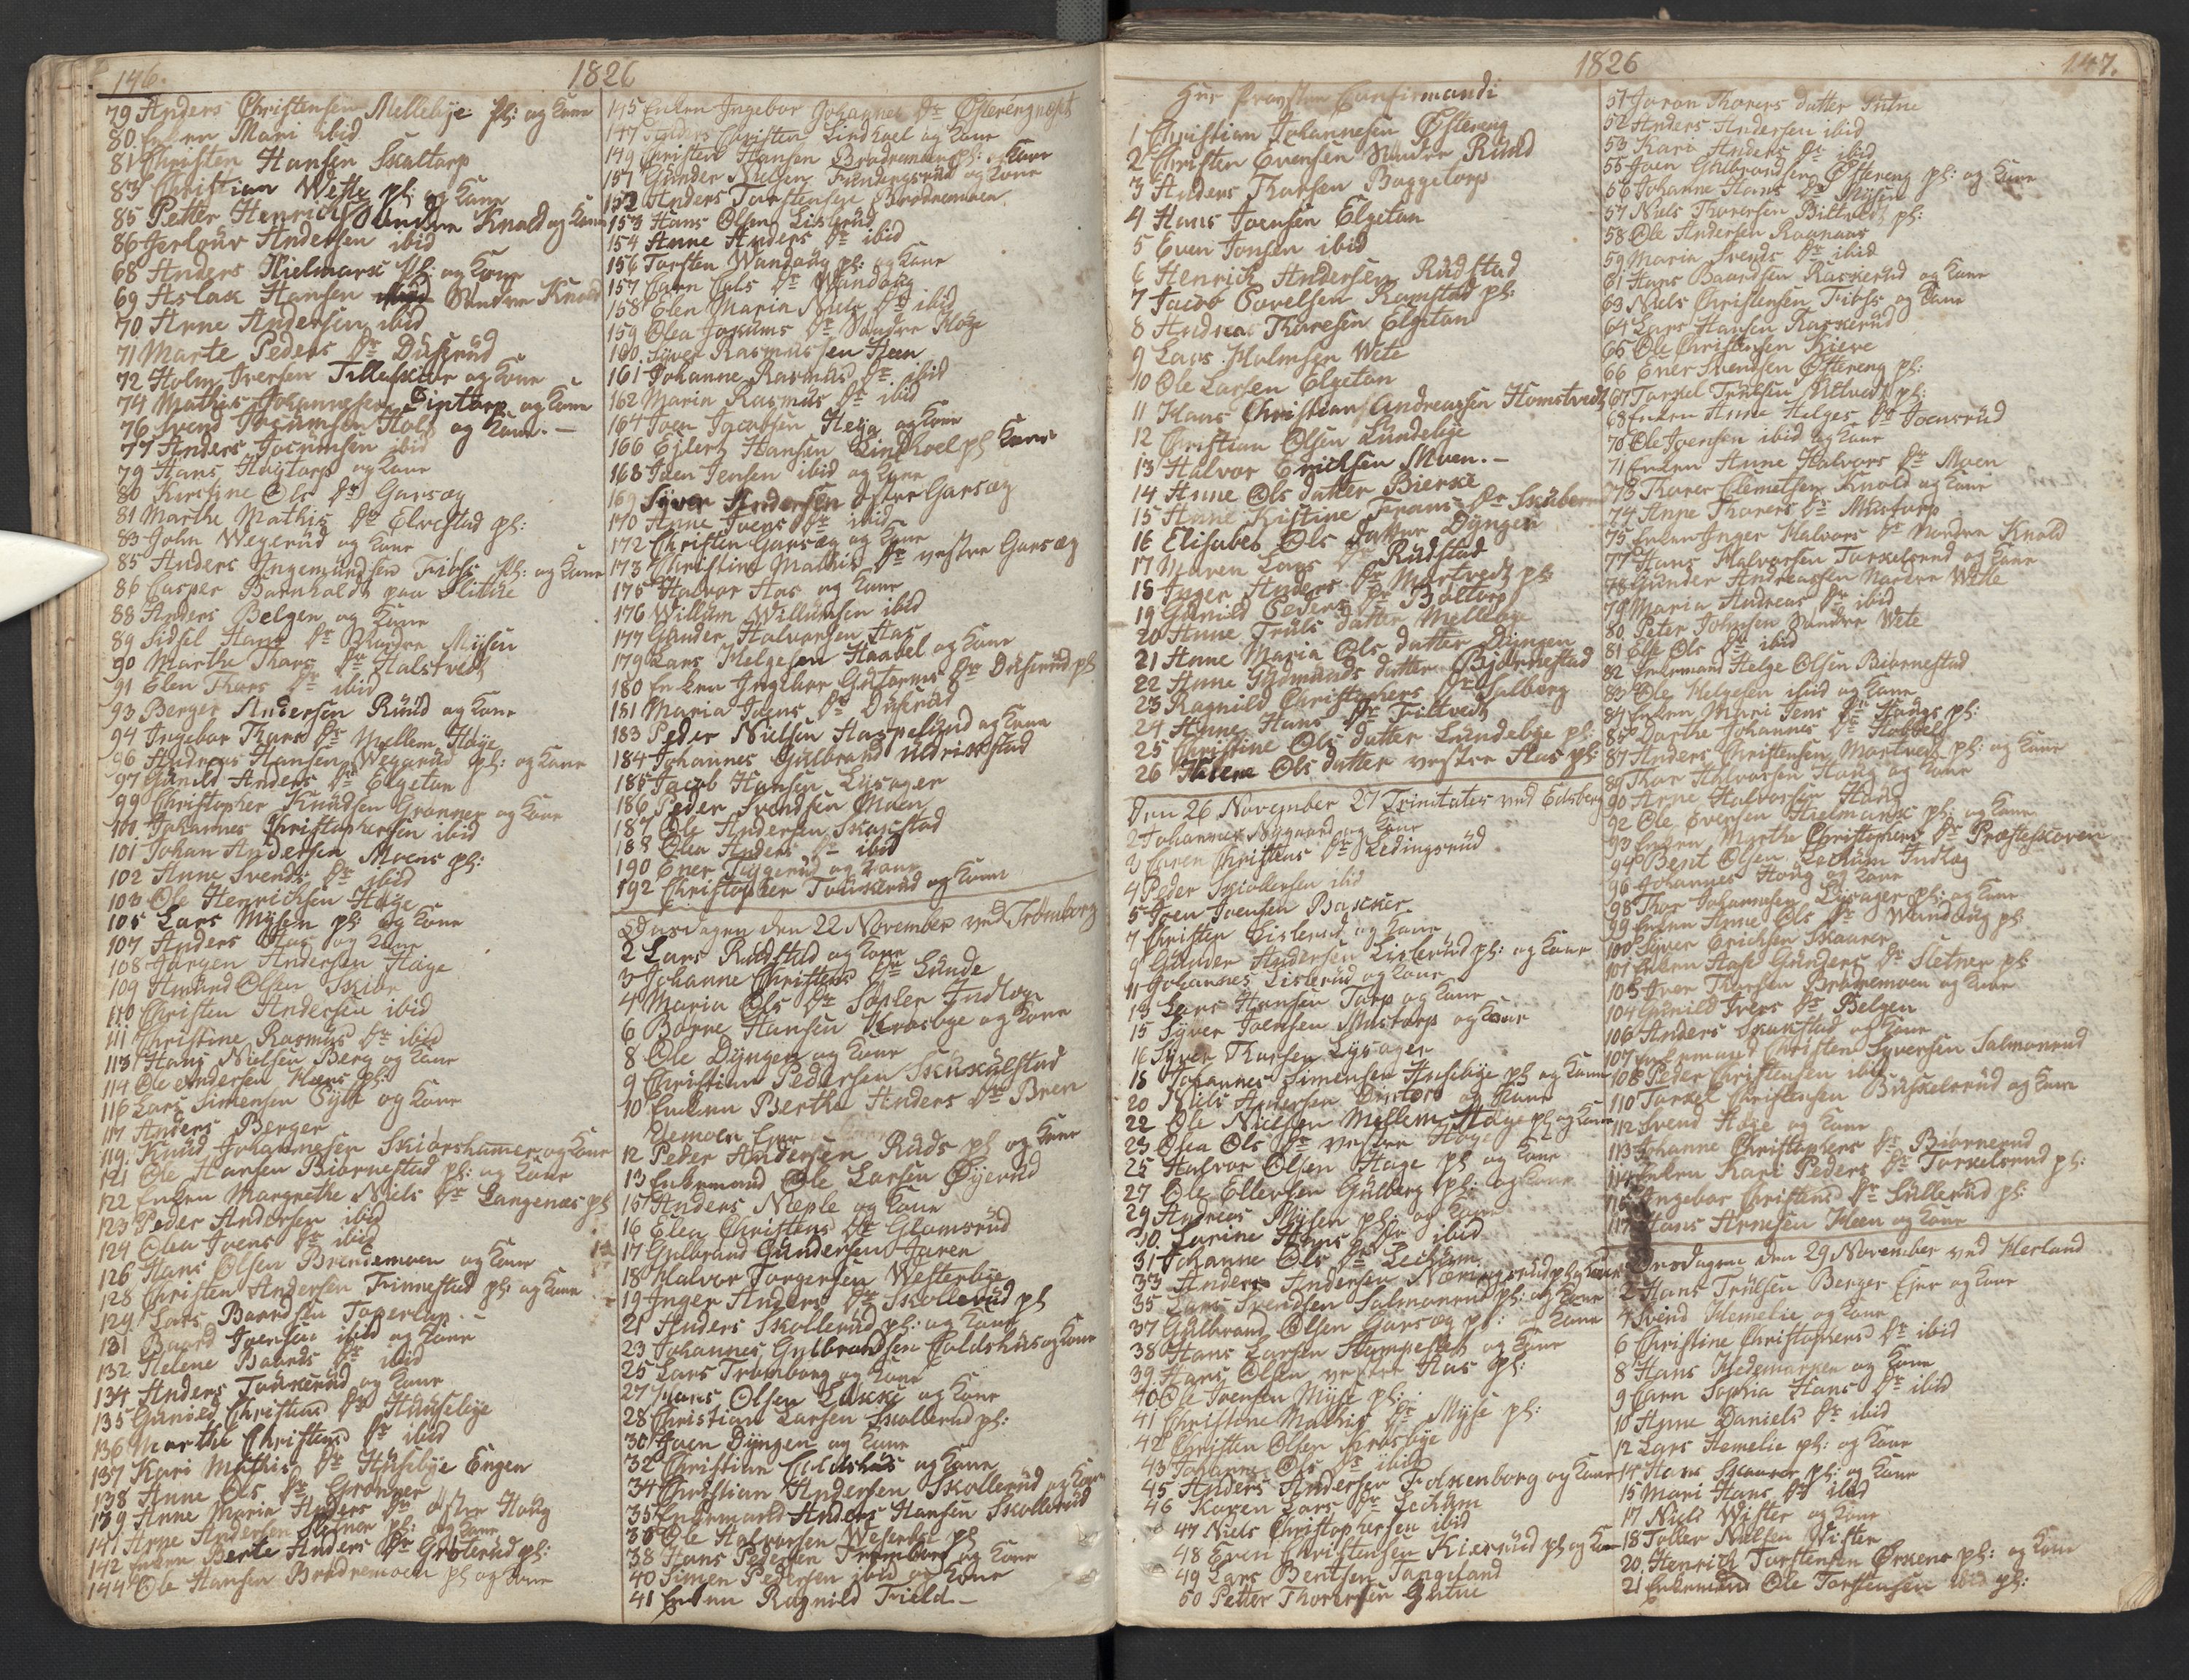 146.
1826
79 Anders Christensen Mellebye pl: og Kone
80. Enken Mari ibid
81 Christen Hansen Skaltorp
83 Christian Wette pl: og Kone
85 Petter Henrichs Søndre Knold og Kone
86 Anderssen ibid
68 Anders Hielmark pl: og Kone
69 Aslak Hansen Søndre Knold
70. Anne Andersen ibid
71 Marte Peders Dr Duserud
72 Holm Iversen og Kone
74 Mathis Johannesen Sintorp og Kone
76 Svend Jocumsen Hold og Kone. -
77 Anders Jocumsen ibid
79 Hans Hagtorp og Kone
80 Kirstine Ols Dr Garsæg
81 Marthe Mathis Dr Elvestad pl:
83 John Wegerud og Kone
85 Anders Ingemundsen Fibss pl: og Kone
86 Casper Barnholdt paa Slitue
88 Anders Belgen og Kone
89 Sidsel Hans Dr Søndre Mysen
90 Marthe Thors Dr Halstvedt
91 Elen Thors Dr ibid
93 Berger Andersen Ruud og Kone
94 Ingebor Thors Dr Mellem Høye
96 Andreas Hansen Wegerud pl: og Kone
97 Gunild Anders Dr Elgetun
99 Christopher Knudsen Grønner og Kone
100 Johannes Christophersen ibid
101 Johan Andersen Moens pl:
102 Anne Svends Dr ibid
103 Ole Henrichsen Høye
105 Lars Mysen pl: og Kone
107 Anders Aas og Kone
108 Jørgen Andersen Høye
109 Amund Olsen Skiør
110 Christen Andersen ibid
111 Christine Rasmus Dr ibid
113 Hans Nielsen Berg og Kone
114 Ole Andersen Heens pl:
116 Lars Simensen Gylt og Kone
117 Anders Berger
119. Knud Johannesen Skiørshamer og Kone
121 Ole Hansen Biørnestad pl: og Kone
122 Enken Margrethe Niels Dr Langenæs pl
123 Peder Andersen ibid
124 Olea Joens Dr ibid
126 Hans Olsen Brendemoen og Kone
128 Christen Andersen Finnestad pl: og Kone
129. Lars Baardsen Toperløp
131 Baard Joensen ibid og Kone
132 Helene Baards Dr ibid
134 Anders Toukerud og Kone
135 Gunild Christens Dr Huusebye
136 Marthe Christens Dr ibid
137 Kari Mathis Dr Husebye Engen
138 Anne Ols Dr Grønner
139 Anne Maria Anders Dr Østre Houg
141 Arne Andersen Sletner pl: og Kone
142 Enken Berte Anders Dr Groterud pl:
144 Ole Hansen Brødremoen pl og Kone
145 Enken Ingebor Johannes Dr Østerengnæset
147 Anders Christen Lindhoel og Kone
149 Christen Hansen Brødremoen pl: og Kone
151 Gunder Nielsen Fundingsrud og Kone
152 Anders Torstensen Brødremoen
153 Hans Olsen Lislerud
154 Anne Anders Dr ibid
156 Torsten Wandoug pl: og Kone
157 Caren Cols Dr Wandoug
158 Elen Maria Niels Dr ibid
159 Olea Jokums Dr Søndre Høye
160. Syver Rasmussen Heen
161 Johanne Rasmus Dr ibid
162 Maria Rasmus Dr ibid
164 Joen Jacobsen Heya og Kone
166 Ejlert Hansen Lindhoel pl Kone
168 Joen Jensen ibid og Kone
169 Syver Andersen Østre Garsæg
170 Anne Joens Dr ibid
172 Christen Garsæg og Kone
173 Christine Mathis Dr vestre Garsæg
175 Halvor Aas og Kone
176 Willum Willumsen ibid
177 Gunder Halvorsen Aas
179 Lars Helgesen Haabel og Kone
180 Enken Ingebor Gutorms Dr Duserud pl
181 Maria Joens Dr Duserud
183 Peder Nielsen Haspelund og Kone
184 Johannes Gulbrand Uldrichstad
185 Jacob Hansen Lysager
186 Peder Svendsen Moen
187 Ole Andersen Skakstad
188 Olea Anders Dr ibid
190 Ener Tuggerud og Kone
192 Christopher Toukerud og Kone
Odnsdagen den 22 November ved Trømborg
2 Lars Rudstad og Kone
3 Johanne Christens Dr Lunde
4 Maria Ols Dr Sæler Indlog
6 Børre Hansen Krosbye og Kone
8 Ole Dyngen og Kone
9 Christian Pedersen Skukulstad
10 Enken Berthe Anders Dr Bren
demoen Ejer
12 Peder Andersen Ruds pl og Kone
13 Enkemand Ole Larsen Øyerud
15 Anders Næple og Kone
16 Elea Christens Dr Glomsrud
17 Gulbrand Gundersen Jaren
18 Halvor Torgersen Westerbye
19 Inger Anders Dr Skollerud pl
21 Anders Skollerud pl: og Kone
23 Johannes Gulbrandsen Coldshus og Kone
25 Lars Trømborg og Kone
27 Hans Olsen Løkke og Kone
28 Christian Larsen Skollerud pl:
30 Joen Dyngen og Kone
32 Christian Coldshus og Kone
34 Christian Andersen Skollerud og Kone
35 Enkemand Anders Hansen Skollerud
36 Ole Halvorsen Westerbye pl
38 Hans Pedersen Trømborg og Kone
40 Simen Pedersen ibid og Kone
41 Enken Ragnild Field -
1826
147.
Hr Provsten Confirmandi
1 Christian Johannesen Østereng
2 Christen Evensen Søndre Ruud
3 Anders Thorsen Baggetorp
4 Hans Joensen Elgetun
5 Even Jonsen ibid
6 Henrich Andersen Rudstad
7 Jacob Povelsen Ramstad pl:
8 Andreas Thoresen Elgetun
9 Lars Holmsen Wete
10 Ole Larsen Elgetun
11 Hans Christian Andreassen Homstvedt
12 Christian Olsen Lundebye
13 Halvor Erichsen Moen. -
14 Anne Ols datter Bierke
15 Anne Kistine Frans Dr Skuberud
16 Elisabeth Ols Datter Dyngen
17 Maren Lars Dr Rudstad
18 Inger Anders Dr Martvedt pl:
19 Gunild Peders Dr Boltorp
20 Anne Truls datter Mellebye
21 Anne Maria Ols datter Dyngen
22 Anne Gudmunds datter Biørnestad
23 Ragnild Christophers Dr Salberg
24 Anne Hans Dr Filtvedt
25 Christine Ols datter Lundebye pl:
26 Helene Ols datter vestre Aas pl:
Den 26 November 27 Trinitatis ved Edsberg
2 Johannes Nygaard og Kone
3 Karen Christens Dr Ledingsrud
4 Peder Skiollersen ibid
5 Joen Joensen Bakker
7 Christen Lislerud og Kone
9 Gunder Andersen Lislerud pl: og Kone
11 Johannes Lislerud og Kone
13 Lars Hansen Torp og Kone
15 Syver Joensen Mustorp og Kone
16 Syver Thorsen Lysager
18 Johannes Simensen Husebye pl og Kone
20 Niels Andersen Sintorp og Kone
22 Ole Nielsen Mellem Høye pl og Kone
23 Olea Ols Dr vestre Høye
25 Halvor Olsen Høye pl og Kone
27 Ole Ellevsen Gulberg pl: og Kone
29 Andreas Mysen pl: og Kone
30. Karine Hans Dr ibid
31 Johanne Ols Dr Lechum
33 Anders Andersen Næmingsrud pl og Kone
35 Lars Svendsen Salmonrud pl: og Kone
37 Gulbrand Olsen Garsæg pl: og Kone
38 Hans Larsen Stampeslet og Kone
39. Hans Olsen vestre Aas pl:
40 Ole Joensen Myse pl:
41 Christine Mathis Dr Myse pl:
42 Christen Olsen Krosbye
43 Johanne Ols Dr ibid
45 Anders Andersen Folkenborg og Kone
46 Karen Lars Dr Lechum
47 Niels Christophersen ibid
48 Even Christensen Kierrud pl og Kone
49 Lars Bentsen Tangeland
50 Petter Thorersen Gutue
51 Joran Thorers datter Gutue
52 Anders Andersen ibid
53 Kari Anders Dr ibid
55 Joen Gulbrandsen Østereng pl: og Kone
56 Johanne Hans Dr Mysen
57 Niels Thorersen Biltvedt pl:
58 Ole Andersen Raanaas
59 Maria Svends Dr ibid
61 Hans Baardsen Raskerud og Kone
63 Niels Christensen Fibss og Kone
64 Lars Hansen Raskerud
65 Ole Christensen Kieve
66 Ener Svendsen Østereng pl:
67 Torkel Trulsen Utvedt pl:
68 Enken Anne Helges Dr Joensrud
70 Ole Joensen ibid og Kone
71 Enken Anne Halvors Dr Moen
73 Thorer Clemetsen Knold og Kone
74 Anne Thorers Dr Mustorp
75 Enken Inger Halvors Dr Nordre Knold
77 Hans Halvorsen Torkelsrud og Kone
78 Gunder Andreassen Nordre Wette
79 Maria Andreas Dr ibid
80 Peter Johnsen Søndre Wete
81 Else Ols Dr ibid
82 Enkemand Helge Olsen Biørnestad
83 Ole Helgesen ibid og Kone
84 Enken Mari Jens Dr Hougs pl:
85 Dorthe Johannes Dr Hobbel
87 Anders Christensen Martvedt pl: og Kone
89 Thor Halvorsen Houg og Kone
90 Arne Halvorsen Houg
92 Ole Evensen Hielmark pl: og Kone
93 Enken Marthe Christophers Dr Præsteskoven
94 Berit Olsen Lechum Indlog
96 Johannes Houg og Kone
98 Thor Johannesen Lysager pl: og Kone
99 Enken Anne Ols Dr Wandoug pl
100 Syver Erichsen Skaarer
101 Enken Aase Gunders Dr Sletner pl
103 Iver Thorsen Brødremoen og Kone
104 Gunild Ivers Dr Belgen
106 Anders Skakstad og Kone
107 Enkemand Christen Syversen Salmonrud
108 Peder Christensen ibid
110 Torkel Christensen Buskelsrud og Kone
112 Svend Høye og Kone
113 Johanne Christophers Dr Biørnerud
114 Enken Kari Peders Dr Torkelsrud pl:
115 Ingebor Christens Dr Sullerud pl:
117 Hans Arnesen Heen og Kone
Onsdagen den 29 November ved Herland
2 Hans Trulsen Berger Ejer og Kone
4 Svend Hemelie og Kone
6 Christine Christophers Dr ibid
8 Hans Hedemarken og Kone
9 Caren Sophia Hans Dr ibid
10 Anne Daniels Dr ibid
12 Lars Hemelie pl: og Kone
14 Hans Skaarer pl: og Kone
15 Mari Hans Dr ibid
17 Niels Wister og Kone
18 Toller Nielsen Wister
20. Henrich Torstensen Ørkene pl: og Kone
21 Enkemand Ole Torstensen ibid pl: